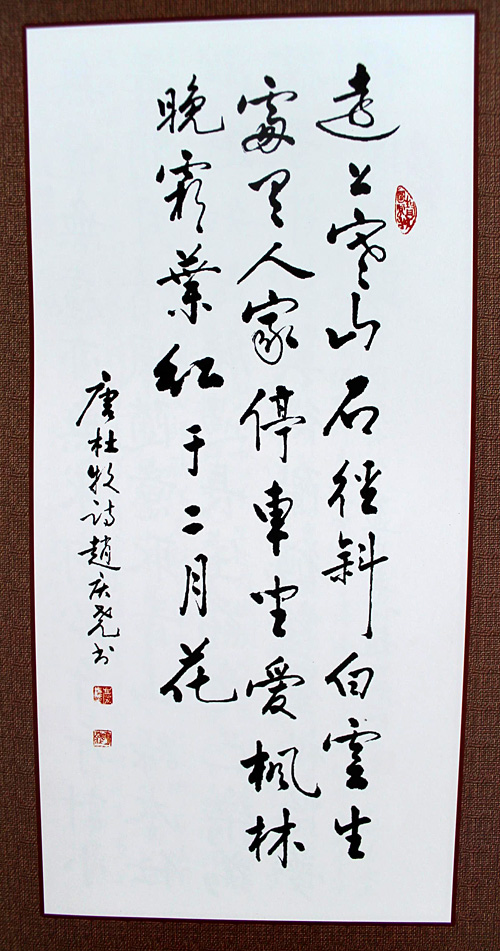 遠上寒山石徑斜白雲生
處有人家停車坐愛楓林
晚霜葉紅于二月花
唐杜牧诗趙庆尧书